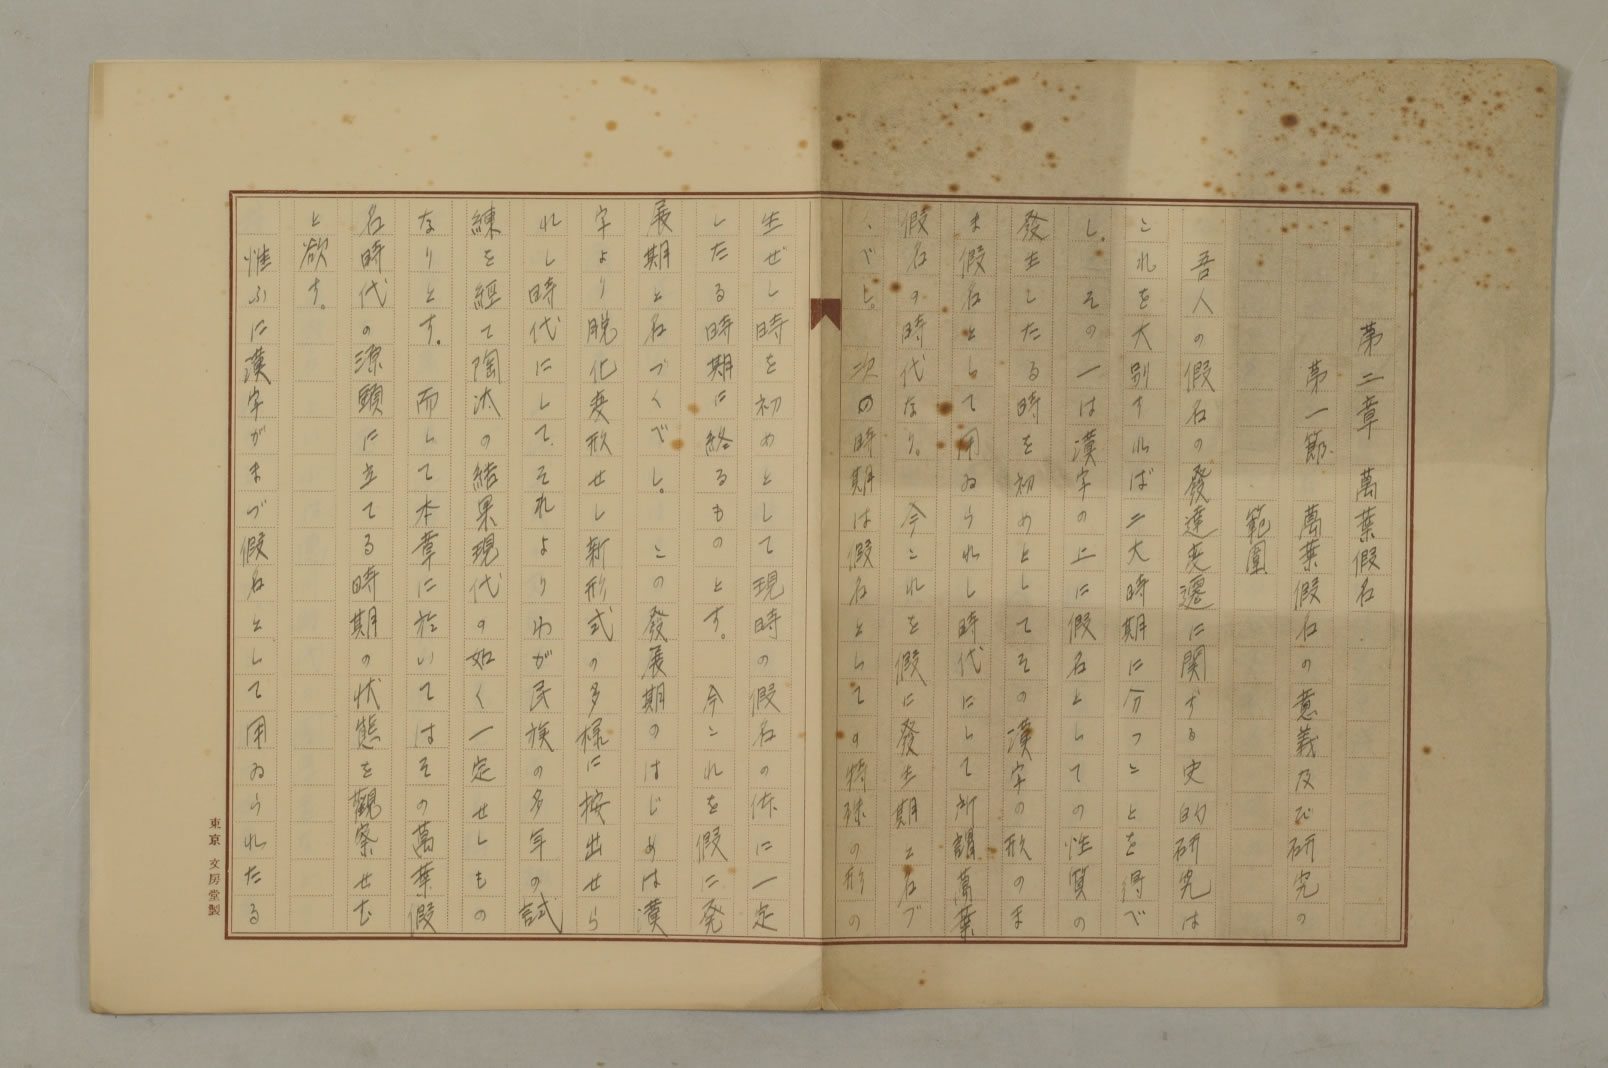 第二章　萬葉假名
第一節　萬葉假名の意義及び研究の
範圍
吾人の假名の發達変遷に関する史的研究は
これを大別すれば二大時期に分つことを得べ
し。その一は漢字の上に假名としての性質の
發生したる時を初めとしてその漢字の形のま
ま假名として用ゐられし時代にして所謂萬葉
假名の時代なり。今これを假に發生期と名づ
くべし。次の時期は假名としての特殊の形の
生ぜし時を初めとして現時の假名の体に一定
したる時期に終るものとす。今これを假に発
展期と名づくべし。この發展期のはじめは漢
字より脱化変形せし新形式の多様に按出せら
れし時代にして、それよりわが民族の多年の試
練を経て陶汰の結果現代の如く一定せしもの
なりとす。而して本章に於いてはその萬葉假
名時代の源頭に立てる時期の状態を觀察せむ
と欲す。
惟ふに漢字がまづ假名として用ゐられたる
東京　文房堂製